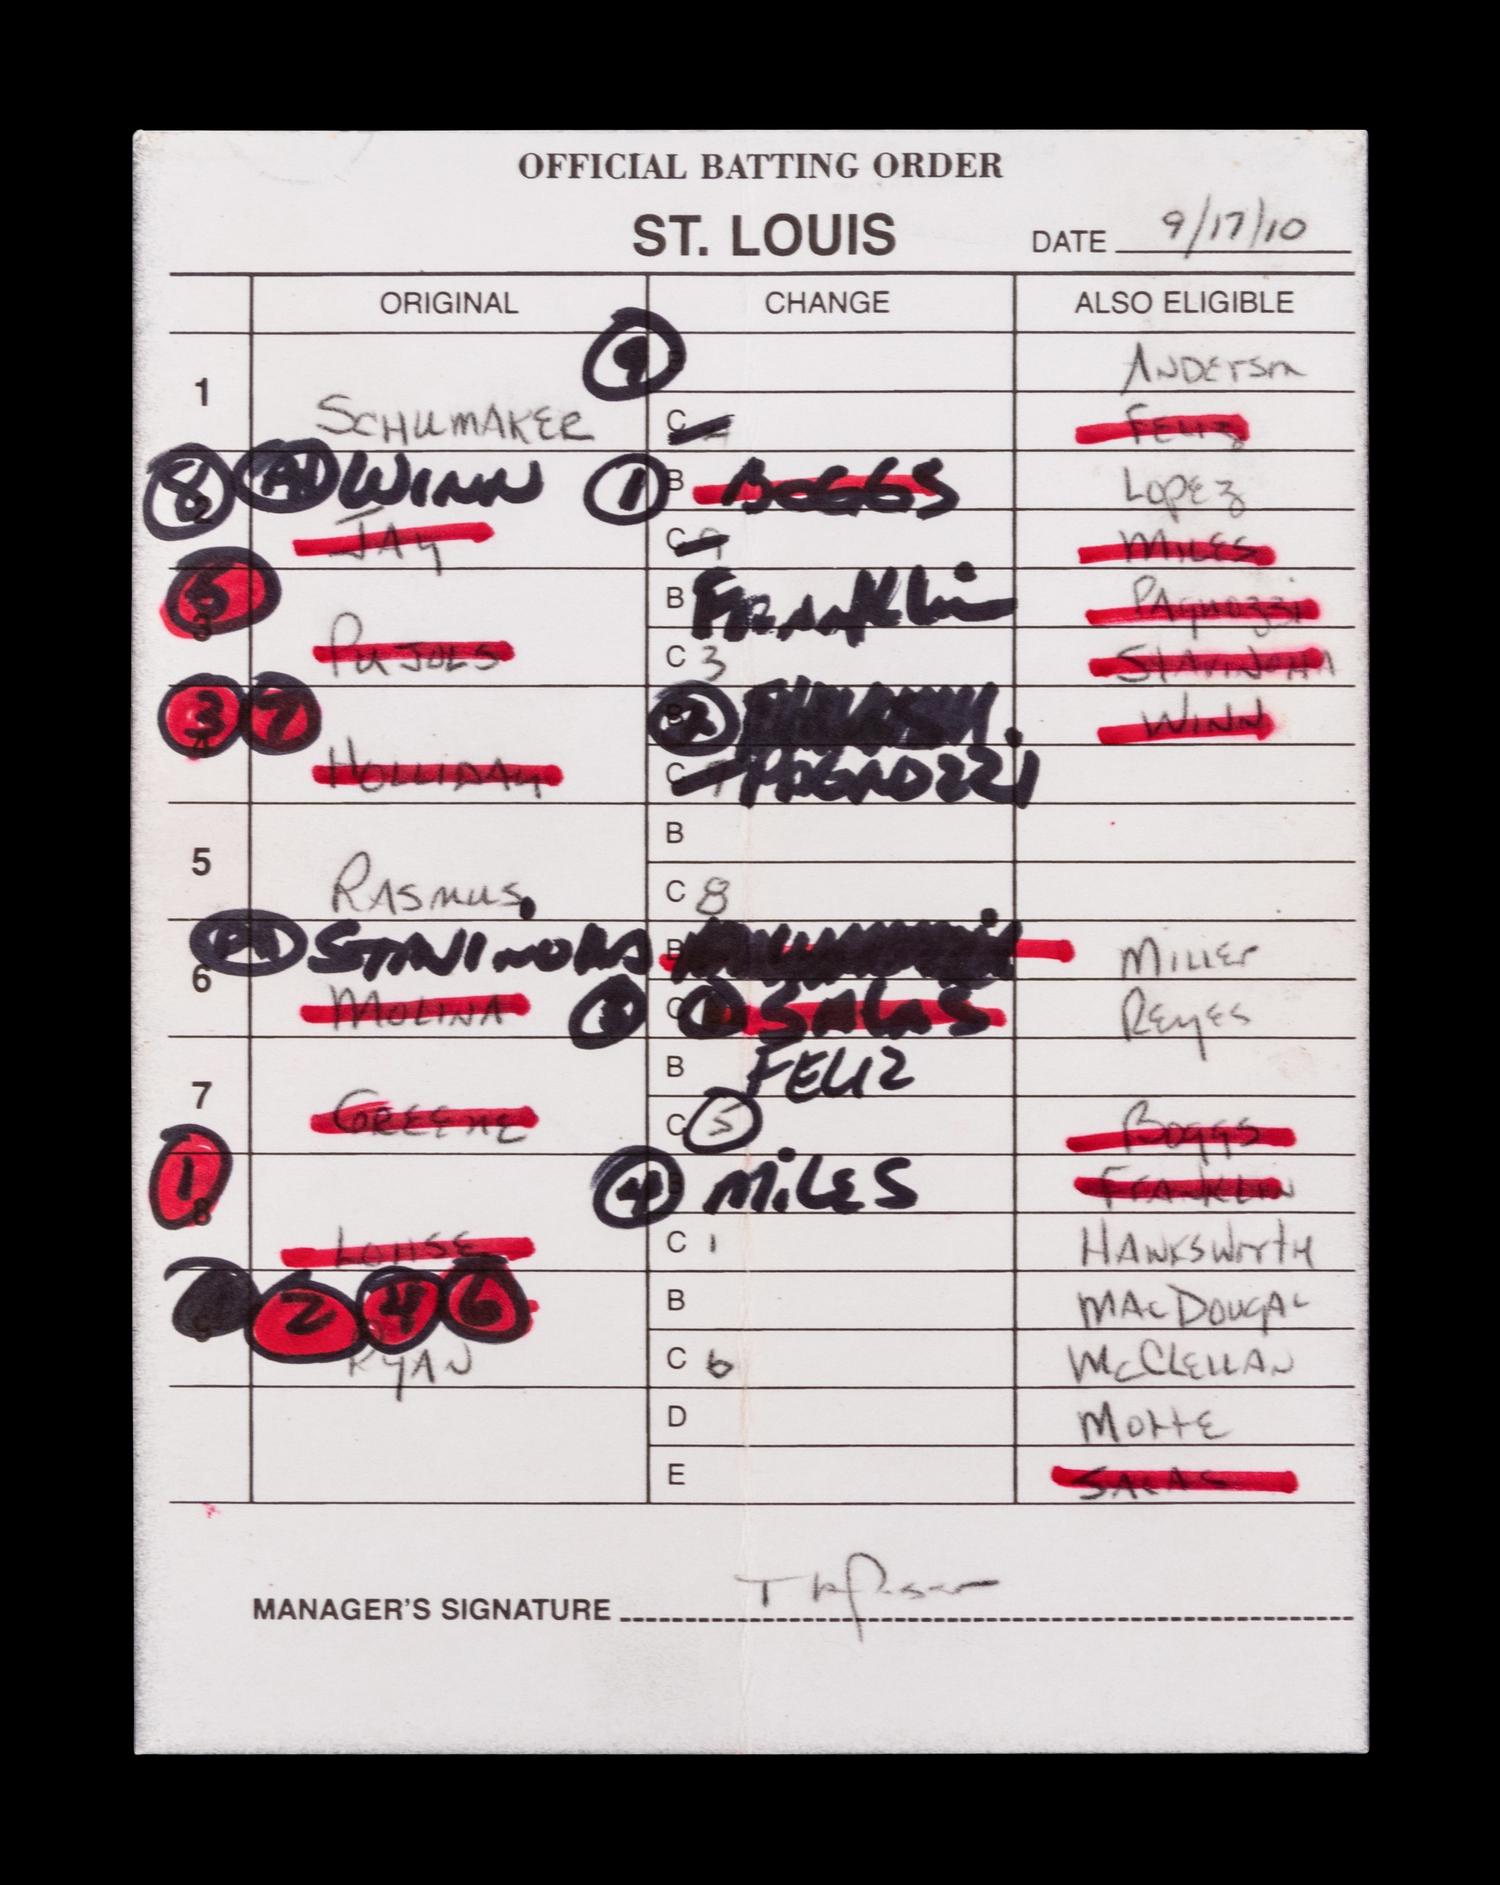 OFFICIAL BATTING ORDER
ST. LOUIS DATE 9/17/10
ORIGINAL CHANGE ALSO ELIGIBLE
9 ANDERSON
1 SCHUMAKER C FELIZ
8 WINN 1 B BOGGS LOPEZ
2 JAY C 9 MILES
5 B FRANKLIN PAGNOZZI
3 PUJOLS C 3 STAVINOHA
3 7 2 WINN
4 HOLLIDAY C 7 PAGNOZZI
B
5 RASMUS C 8
PH STAVINOHA B MILLER
6 MOLINA 3 C SALAS REYES
B FELIZ
7 GREENE C 5 BOGGS
1 4 MILES FRANKLIN
8 LOHSE C 1 HAWKSWORTH
2 4 6 B MACDOUGAL
9 RYAN C 6 MCCLELLAN
D MOTTE
E SALAS
MANAGER'S SIGNATURE